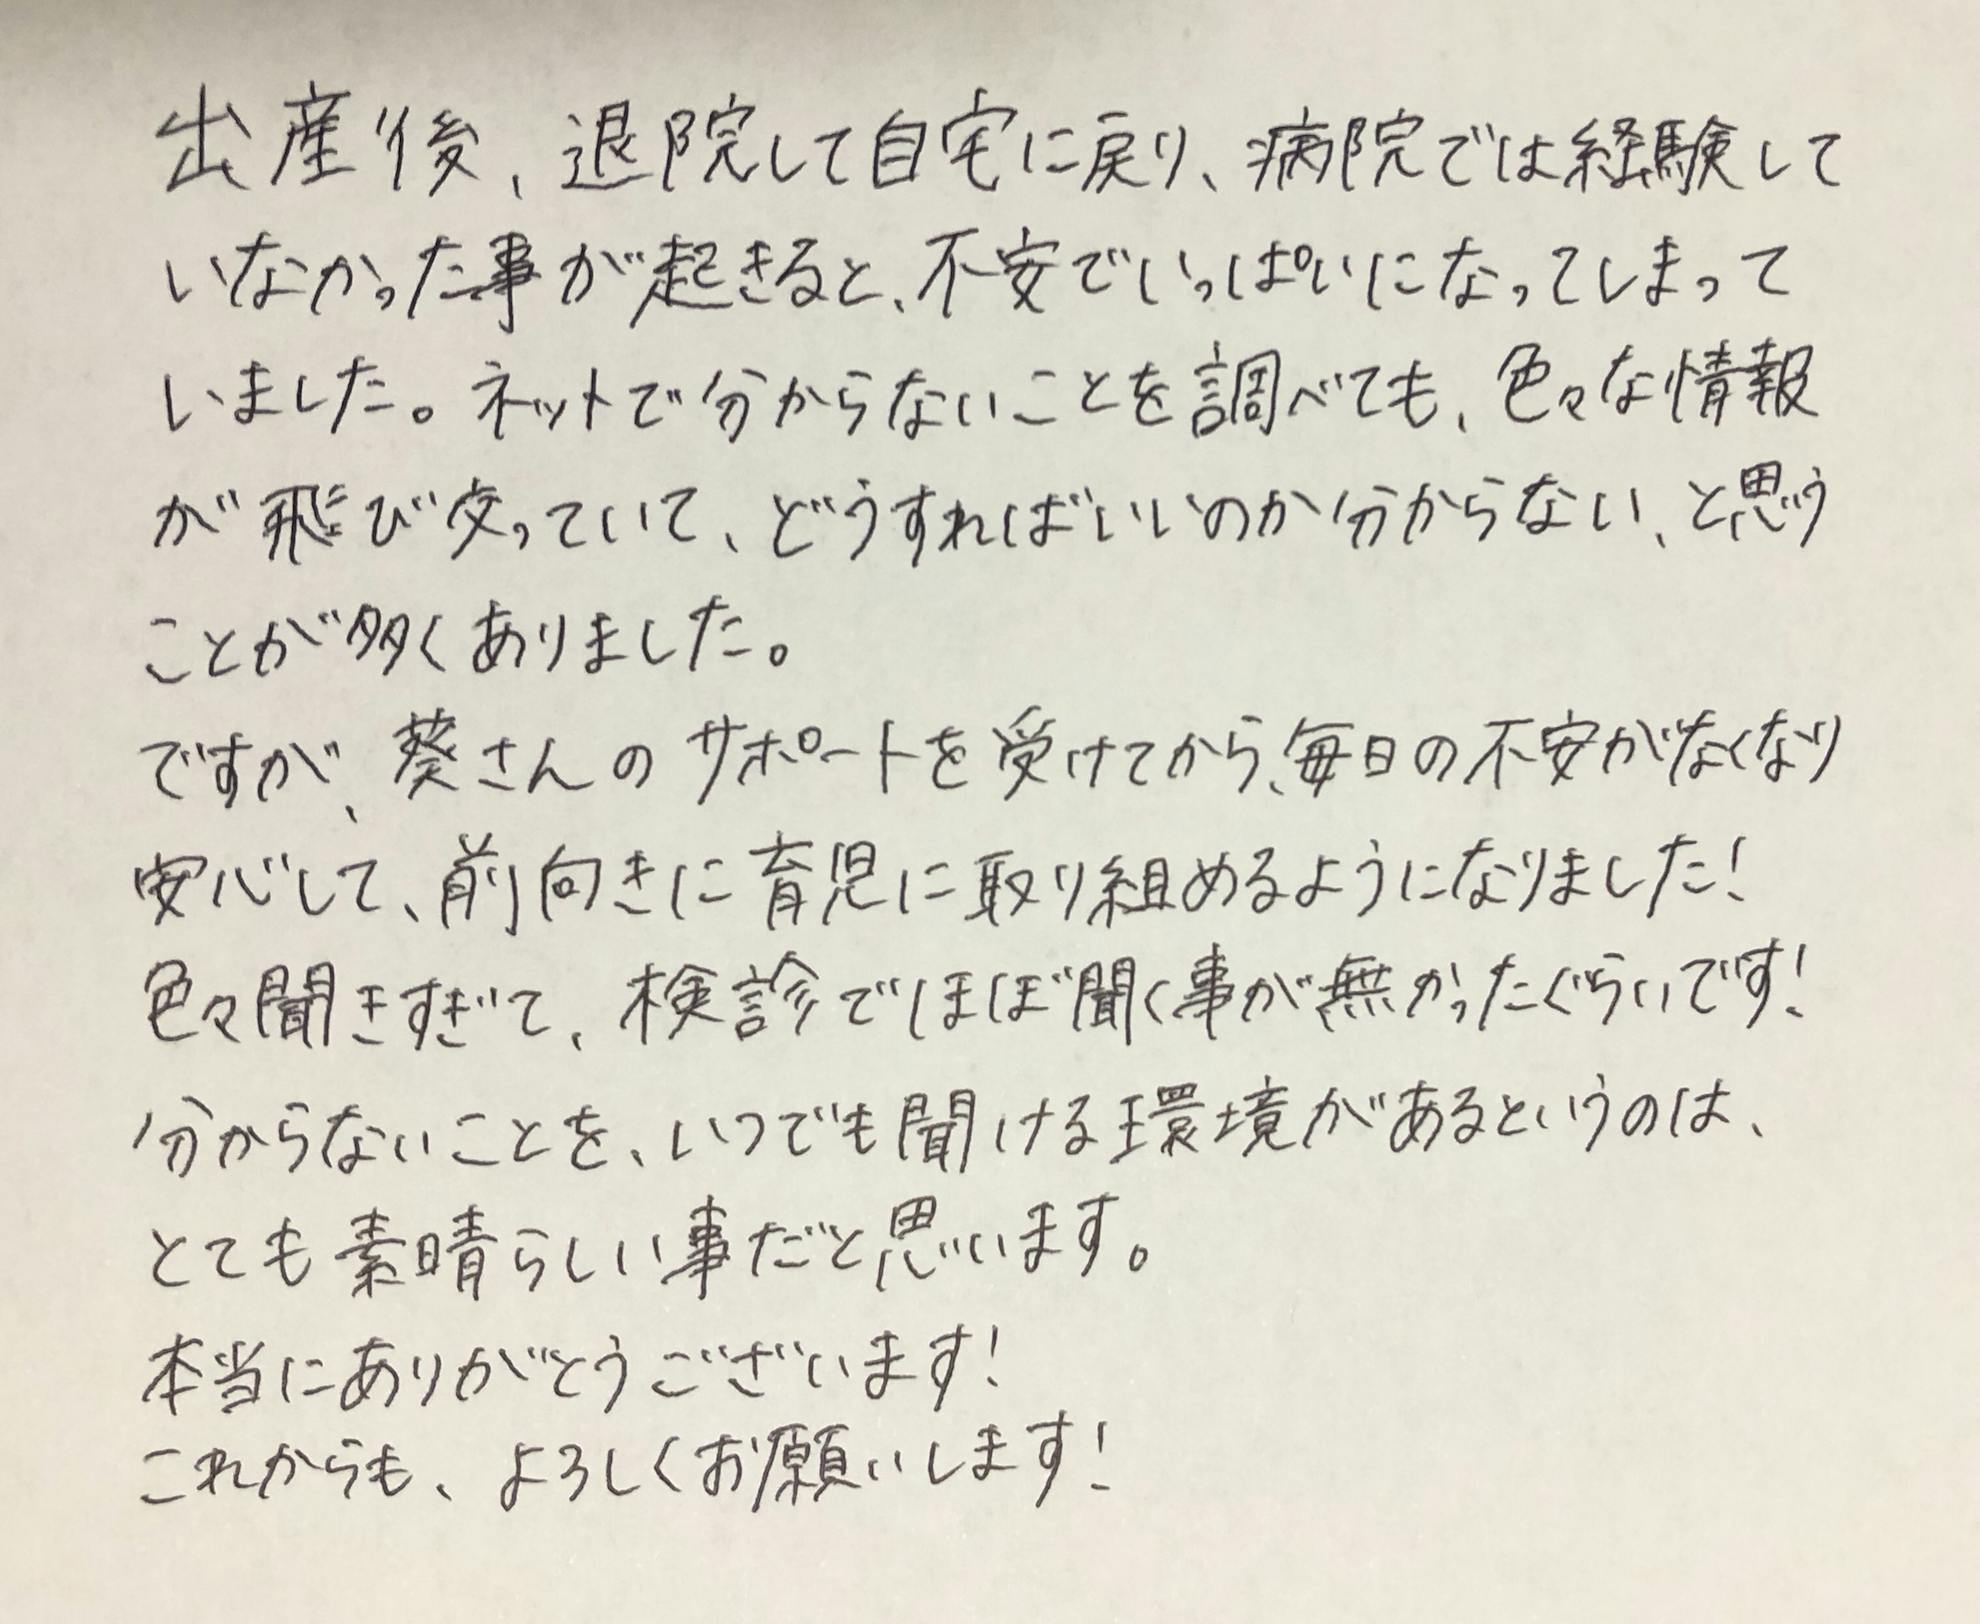 出産後、退院して自宅に戻り、病院では経験して
いなかった事が起きると、不安でいっぱいになってしまって
いました。ネットで分からないことを調べても、色々な情報
が飛び交っていて、どうすればいいのか分からない、と思う
ことが多くありました。
ですが、葵さんのサポートを受けてから、毎日の不安がなくなり
安心して、前向きに育児に取り組めるようになりました!
色々聞きすぎて、検診でほぼ聞く事が無かったぐらいです!
分からないことを、いつでも聞ける環境があるというのは、
とても素晴らしい事だと思います。
本当にありがとうございます!
これからも、よろしくお願いします!